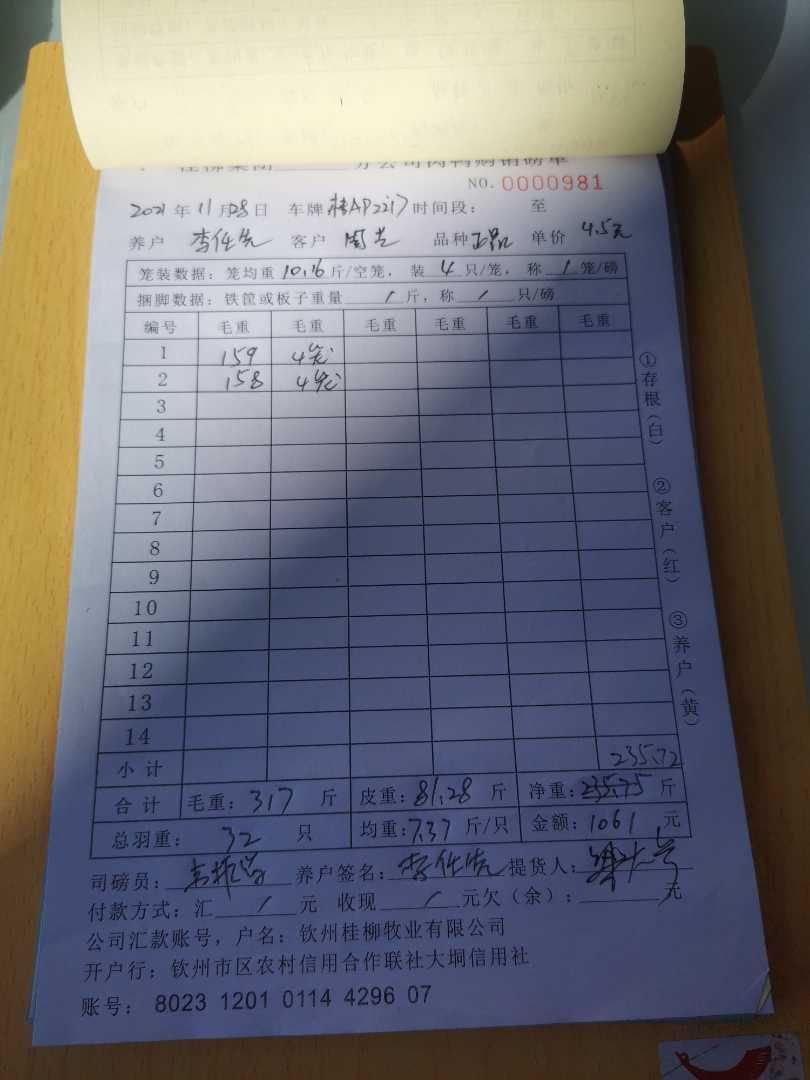 分公司肉鸭购销磅单
NO. 0000981
2021年11月28日 车牌 桂AP2217 时间段: 至
养户 李仕先 客户 品种 正品 单价 4.5元
笼装数据: 笼均重 10.16 斤/空笼, 装 4 只/笼, 称 1 笼/磅
捆脚数据: 铁筐或板子重量 / 斤, 称 / 只/磅
编号 毛重 毛重 毛重 毛重 毛重 毛重
1 159 4笼
2 158 4笼
3
4
5
6
7
8
9
10
11
12
13
14
小计 235.72
合计 毛重: 317 斤 皮重: 81.28 斤 净重: 235.75 斤
总羽重: 32 只 均重: 7.37 斤/只 金额: 1061 元
司磅员: 养户签名: 李仕先 提货人:
付款方式: 汇 / 元 收现 / 元欠(余): 元
公司汇款账号, 户名: 钦州桂柳牧业有限公司
开户行: 钦州市区农村信用合作联社大垌信用社
账号: 8023 1201 0114 4296 07
①存根(白) ②客户(红) ③养户(黄)